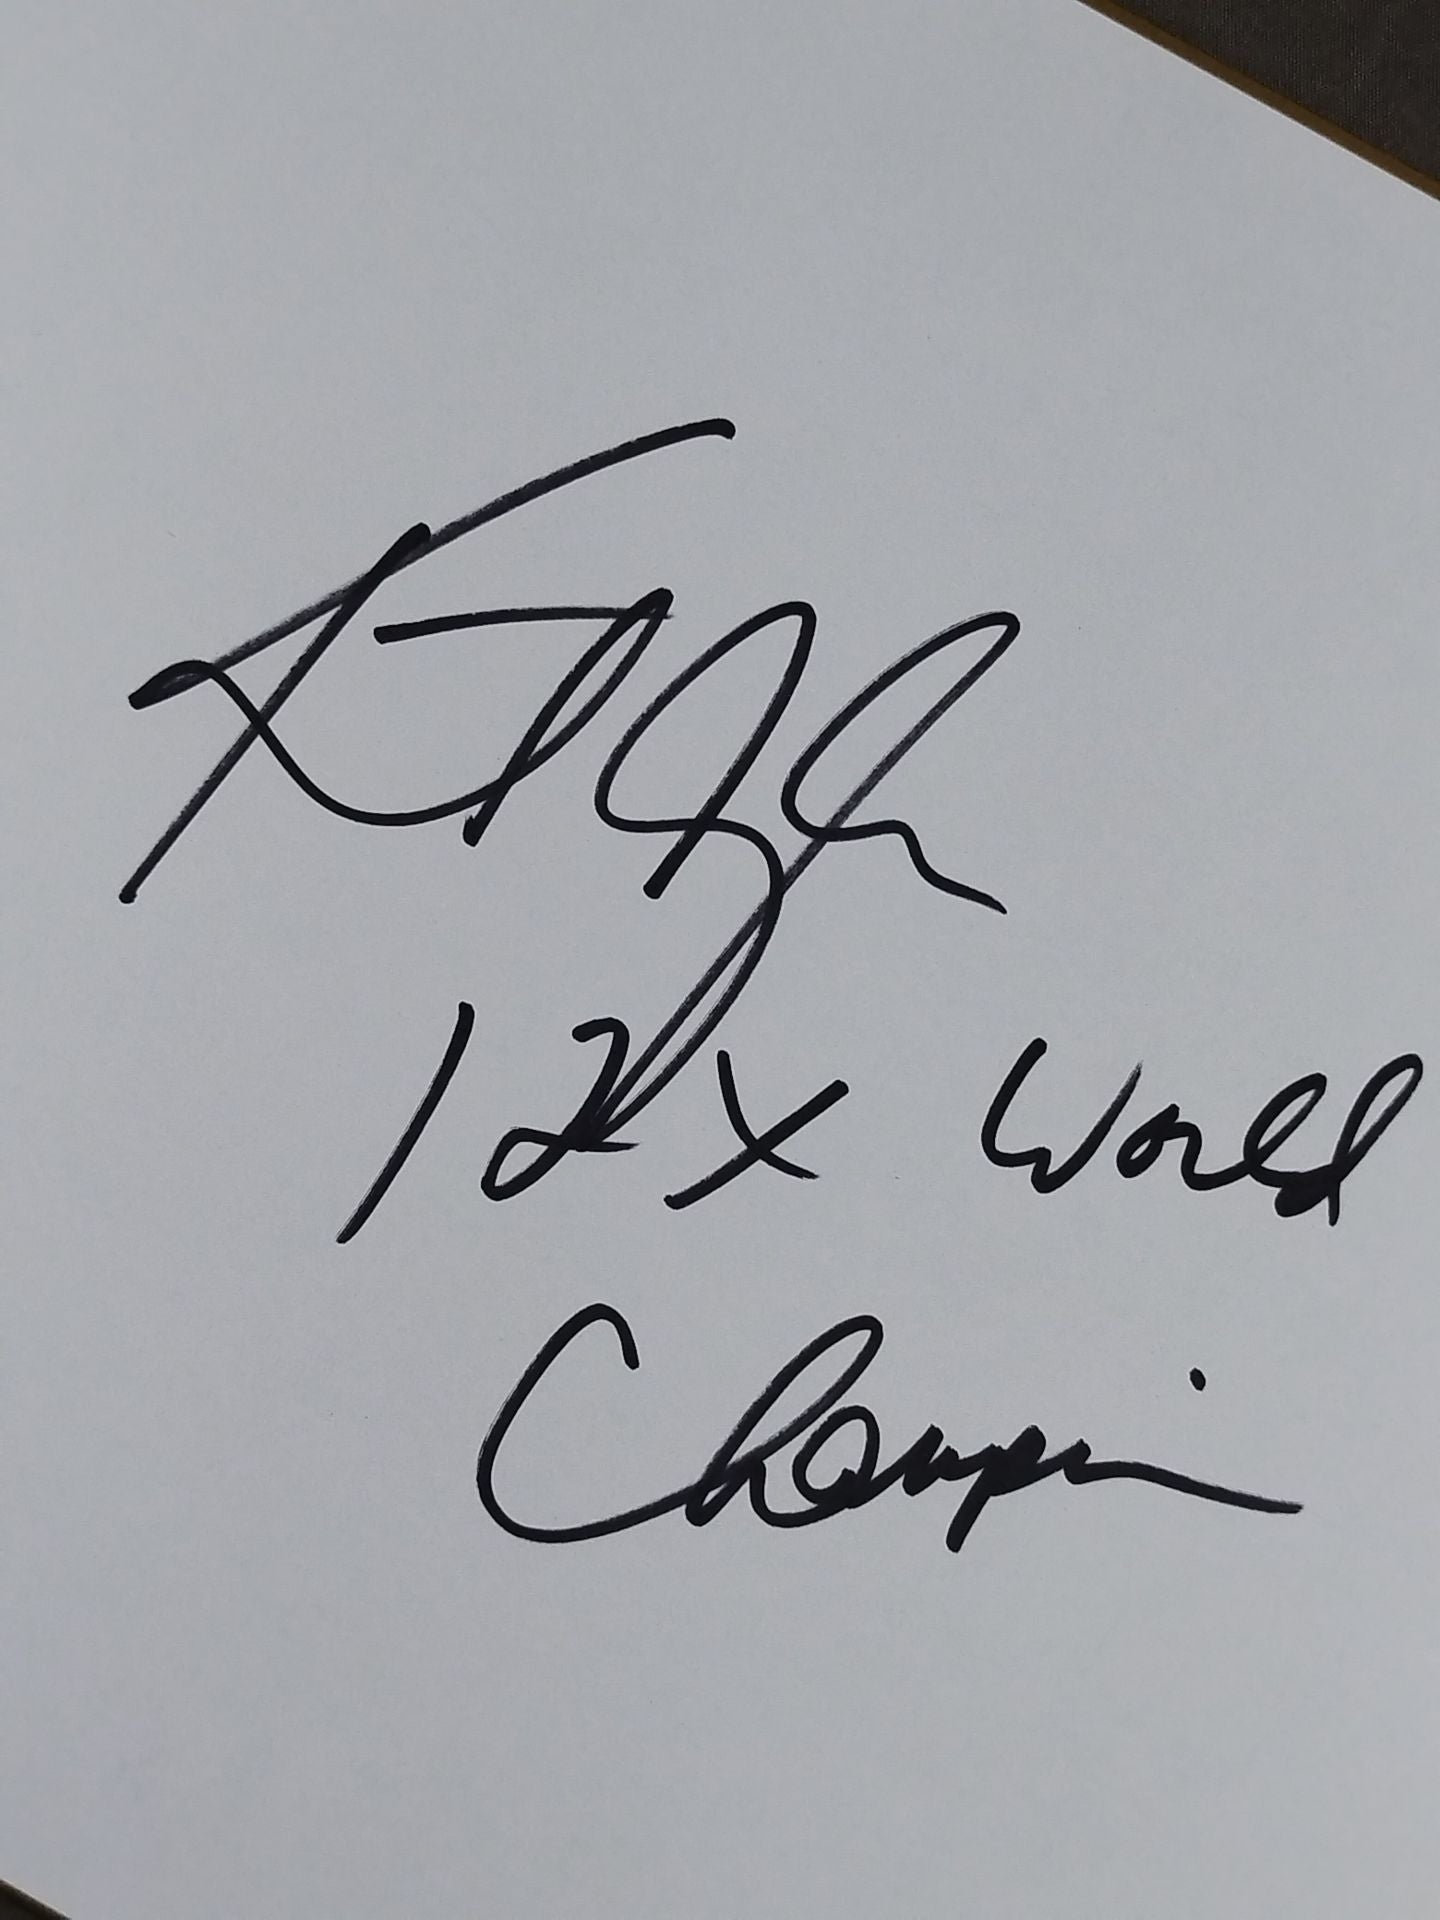 12x World
Champion